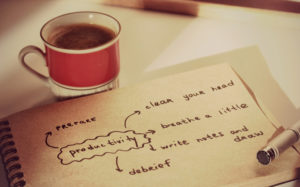 clean your head
prepare
breathe a little
productivity
write notes and
draw
debrief